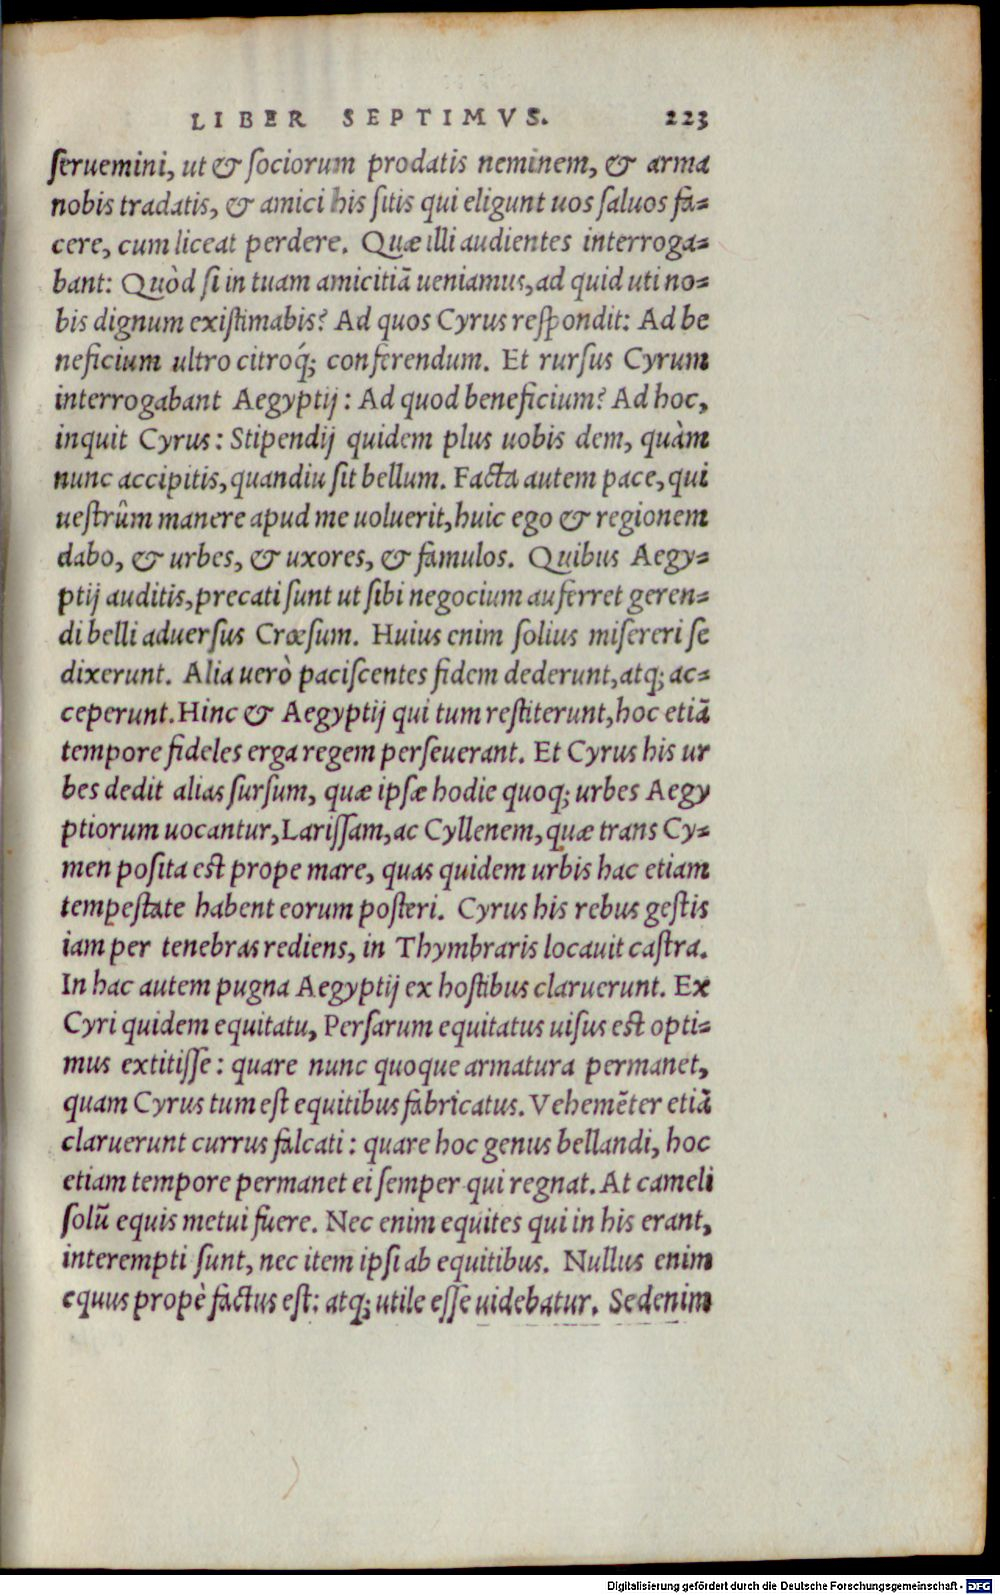 LIBER SEPTIMVS. 223
ſeruemini, ut & ſociorum prodatis neminem, & arma
nobis tradatis, & amici his ſitis qui eligunt uos ſaluos fa-
cere, cum liceat perdere. Quæ illi audientes interroga-
bant: Quòd ſi in tuam amicitiã ueniamus, ad quid uti no-
bis dignum exiſtimabis? Ad quos Cyrus reſpondit: Ad be
neficium ultro citroq́; conferendum. Et rurſus Cyrum
interrogabant Aegyptij: Ad quod beneficium? Ad hoc,
inquit Cyrus: Stipendij quidem plus uobis dem, quàm
nunc accipitis, quandiu ſit bellum. Facta autem pace, qui
ueſtrûm manere apud me uoluerit, huic ego & regionem
dabo, & urbes, & uxores, & famulos. Quibus Aegy-
ptij auditis, precati ſunt ut ſibi negocium auferret geren-
di belli aduerſus Crœſum. Huius enim ſolius miſereri ſe
dixerunt. Alia uerò paciſcentes fidem dederunt, atq; ac-
ceperunt. Hinc & Aegyptij qui tum reſtiterunt, hoc etiã
tempore fideles erga regem perſeuerant. Et Cyrus his ur
bes dedit alias ſurſum, quæ ipſæ hodie quoq; urbes Aegy
ptiorum uocantur, Lariſſam, ac Cyllenem, quæ trans Cy-
men poſita eſt prope mare, quas quidem urbis hac etiam
tempeſtate habent eorum poſteri. Cyrus his rebus geſtis
iam per tenebras rediens, in Thymbraris locauit caſtra.
In hac autem pugna Aegyptij ex hoſtibus claruerunt. Ex
Cyri quidem equitatu, Perſarum equitatus uiſus eſt opti-
mus extitiſſe: quare nunc quoque armatura permanet,
quam Cyrus tum eſt equitibus fabricatus. Vehemẽter etiã
claruerunt currus falcati: quare hoc genus bellandi, hoc
etiam tempore permanet ei ſemper qui regnat. At cameli
ſolũ equis metui fuere. Nec enim equites qui in his erant,
interempti ſunt, nec item ipſi ab equitibus. Nullus enim
equus propè factus eſt: atq; utile eſſe uidebatur. Sed enim
Digitalisierung gefördert durch die Deutsche Forschungsgemeinschaft - DFG